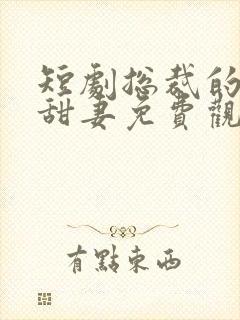 短劇總裁的
甜妻免費觀
有點東西